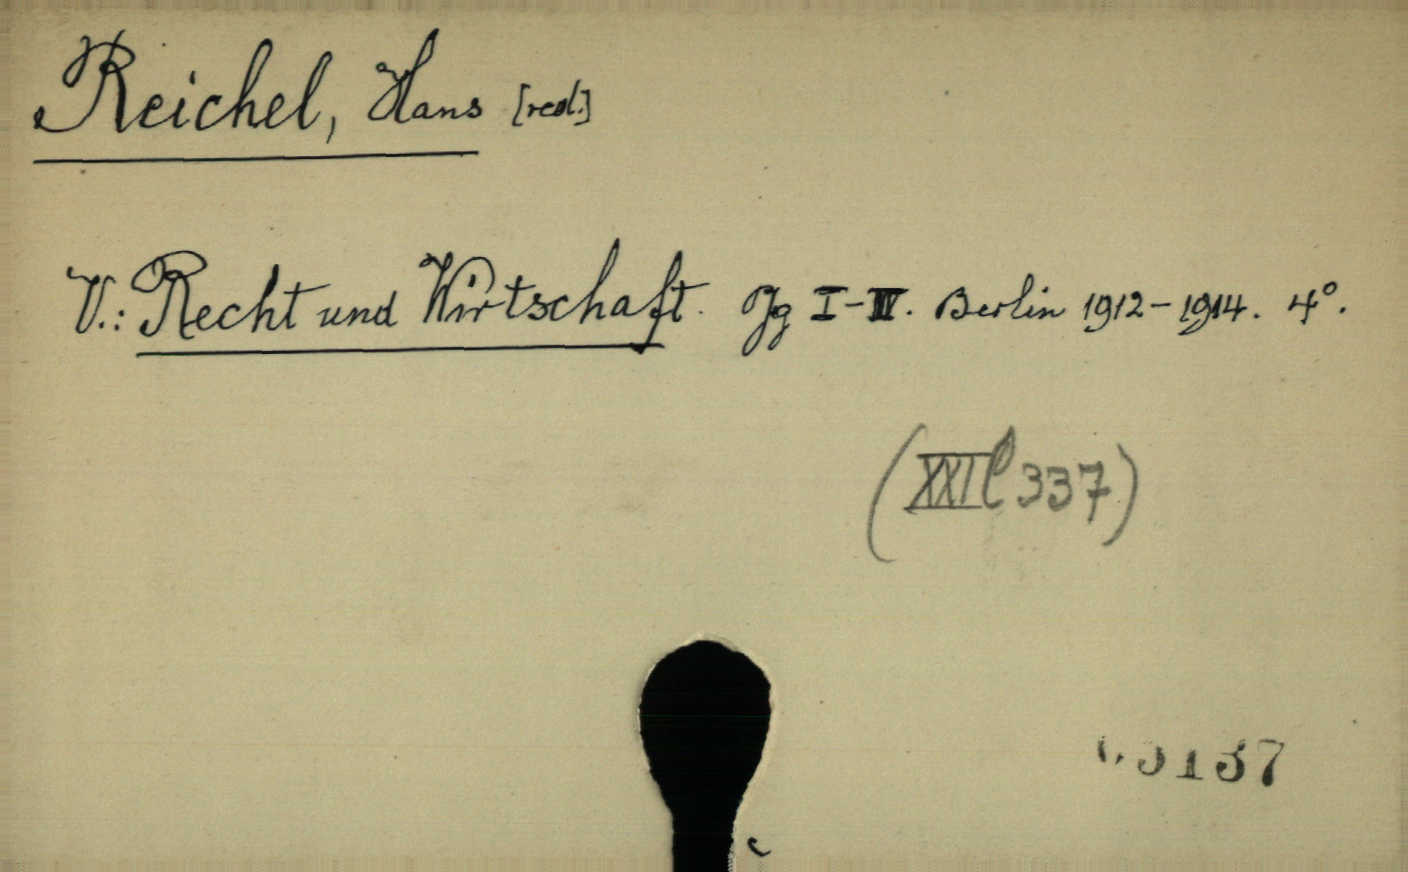 Reichel, Hans [red.]
V.: Recht und Wirtschaft. Jg I-IV. Berlin 1912-1914. 4°.
(XXI l 337)